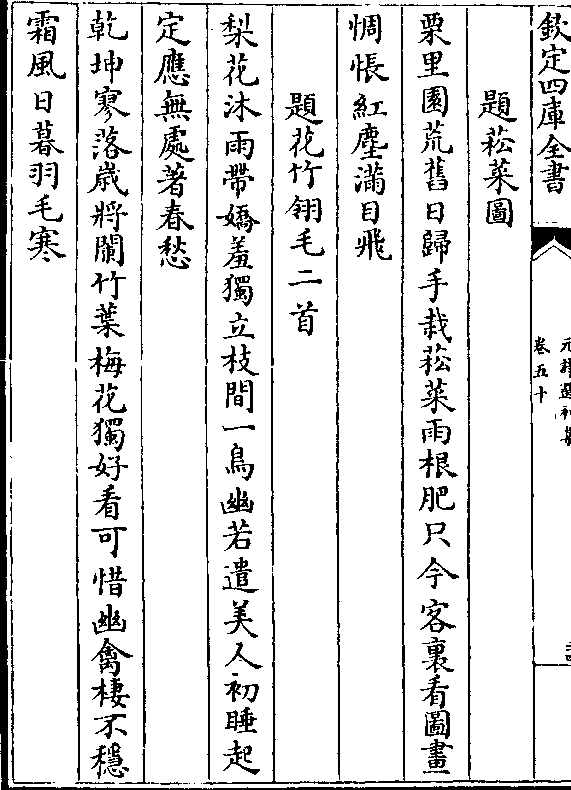 欽定四庫全書
卷五十
題菘菜圖
栗里園荒舊日歸手栽菘菜雨根肥只今客裏看圖畫
惆悵紅塵滿目飛
題花竹翎毛二首
梨花沐雨帶嬌羞獨立枝間一鳥幽若遣美人初睡起
定應無處著春愁
乾坤寥落嵗將闌竹葉梅花獨好看可惜幽禽棲不穩
霜風日暮羽毛寒